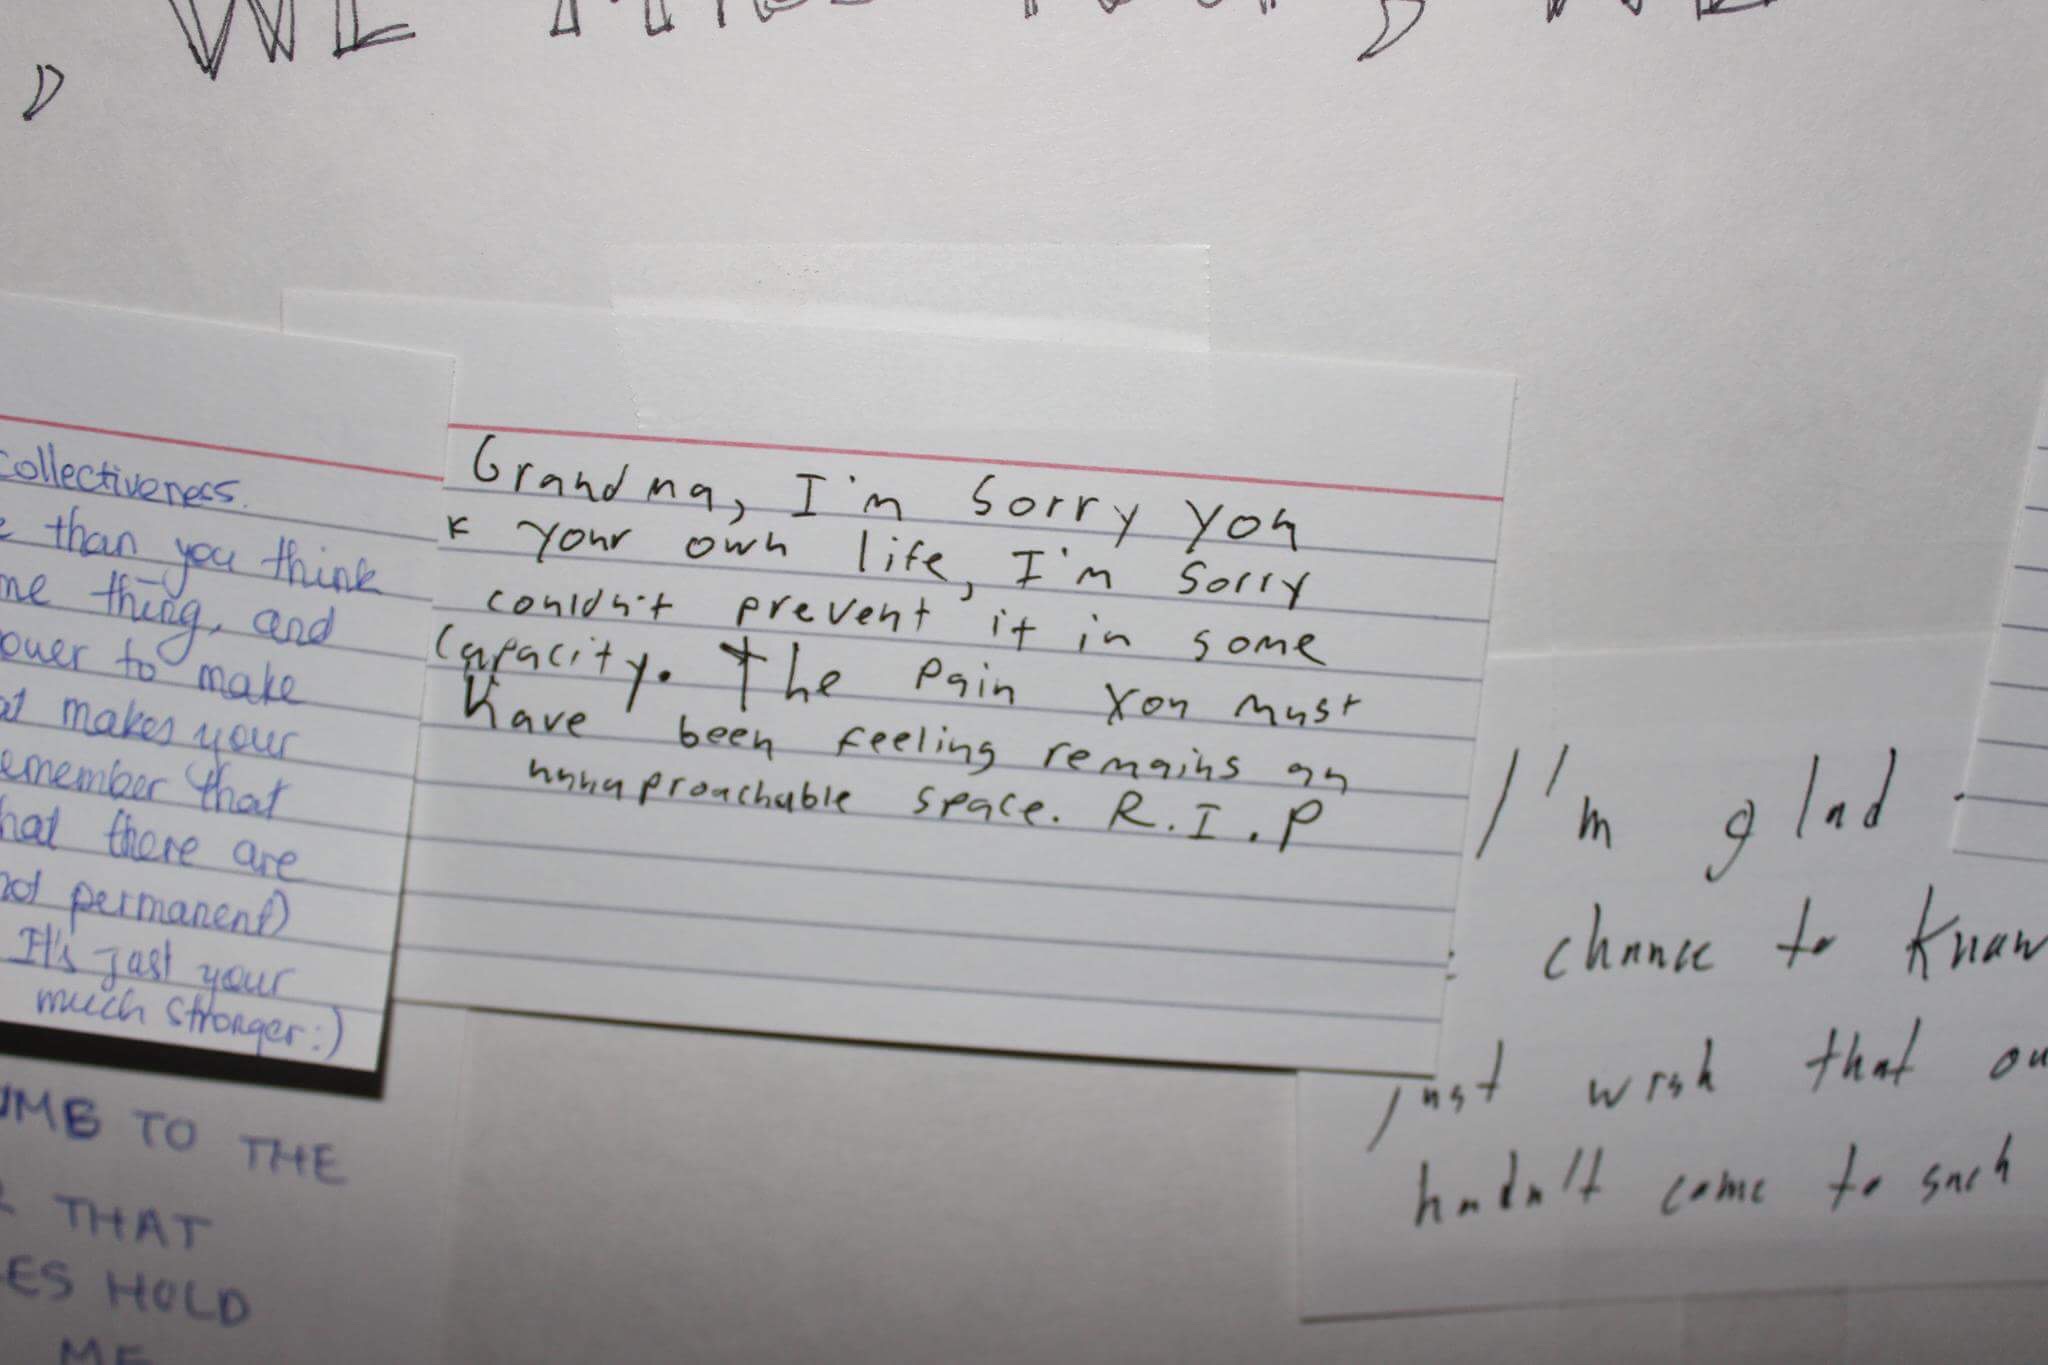 , WE MISS YOU, WE
collectiveness.
than you think
thing, and
to make
makes your
that
there are
permanent)
It's just your
much stronger:)
Grandma, I'm sorry you
k your own life, I'm sorry
couldn't prevent it in some
capacity. The pain you must
have been feeling remains an
ununaproachable space. R.I.P
I'm glad
chance to know
just wish that
hadn't come to such
TO THE
THAT
HOLD
ME